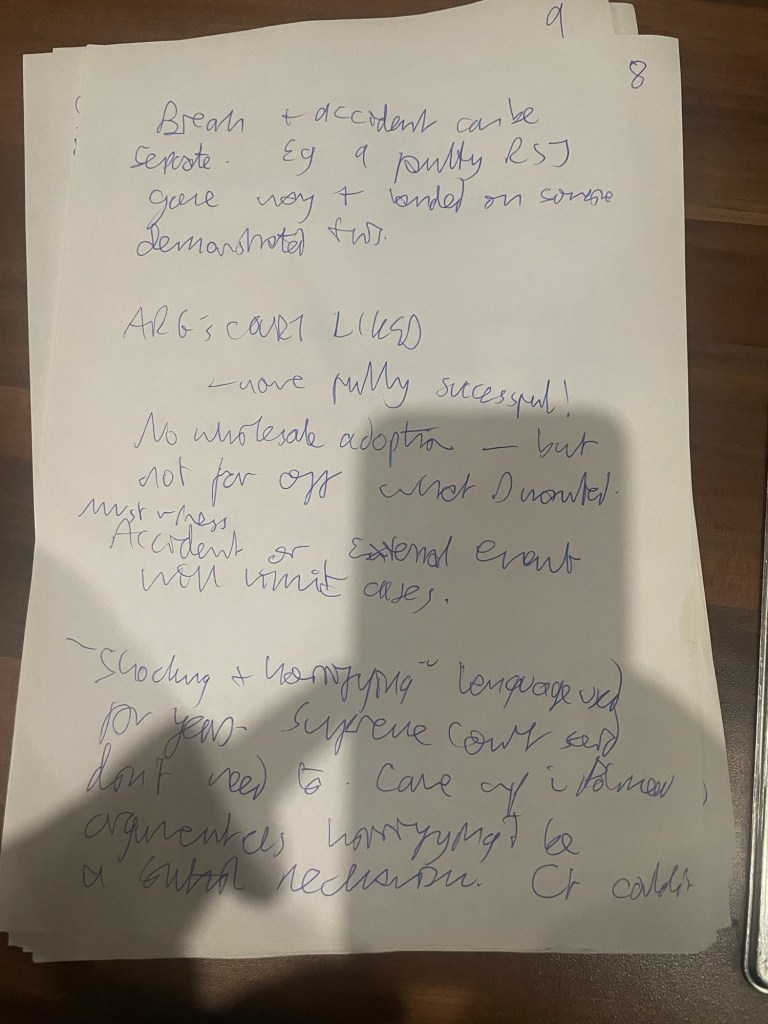 9
8
Breach + accident can be
seperate. Eg a putty RSJ
gave way + landed on someone
demonstrated this.
ARG's COURT LIKED
- none fully successful!
No wholesale adoption - but
not far off what D wanted.
Must witness
Accident or External event
will limit cases.
"Shocking + horrifying" language used
for years - Supreme Court said
don't need to. Came up in
argument as horrifying to be
a control mechanism. Ct couldn't